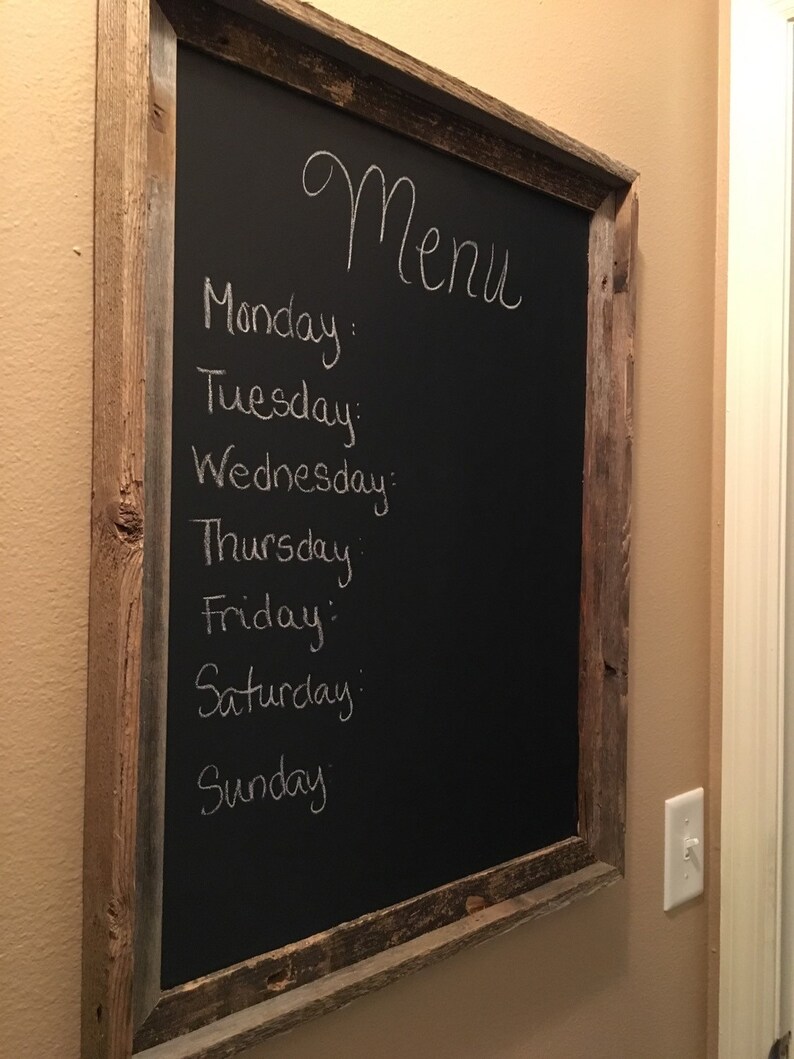 Menu
Monday:
Tuesday:
Wednesday:
Thursday:
Friday:
Saturday:
Sunday